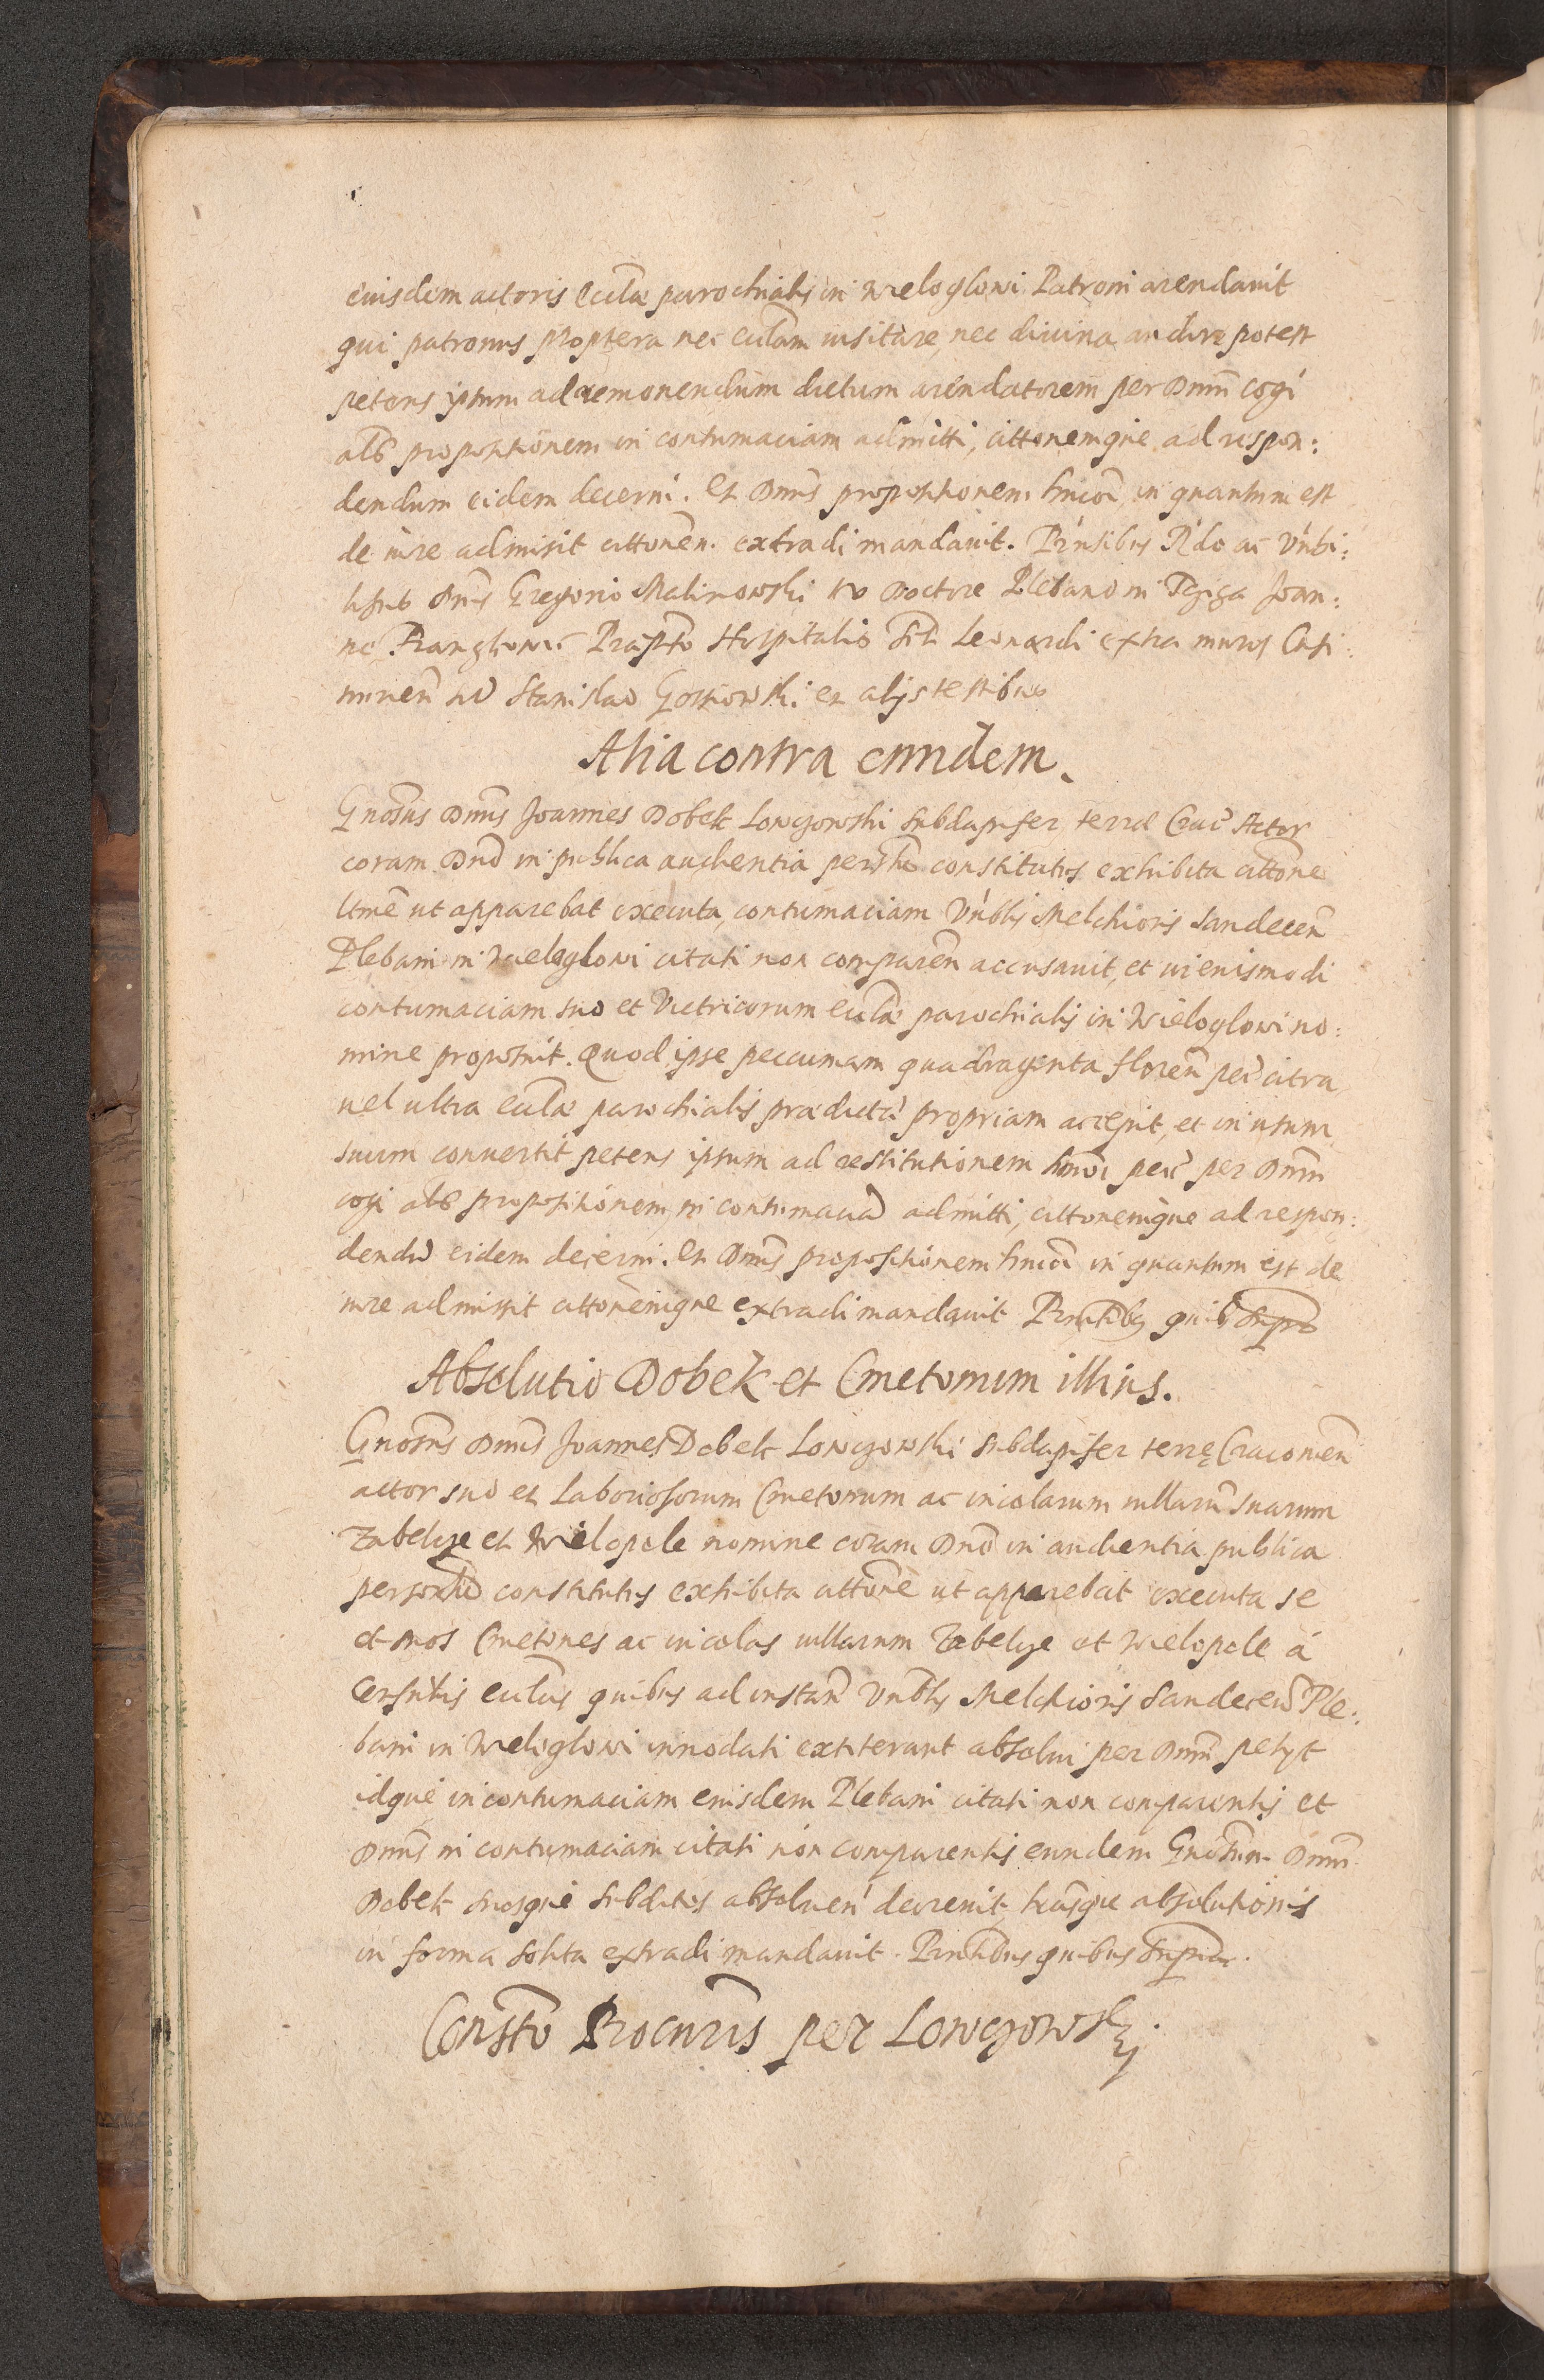 euisdem actoris Ecclæ parochialis in Wieloglowi Patroni arendauit
qui patronus propterea nec ecclam uisitare, nec diuina audire potest
petens ipsum ad remonendum dictum arendatorem per Dnum cogi
als propositionem in contumaciam admitti, cittonemque ad respon:
dendum eidem decerni. Et Dnus propositionem hmoi in quantum est
de iure admisit cittonem extradi mandauit. Pntibus Rdo ac Vnbi:
libus Dnis Gregorio Malinowski Doctore Plebano in Joan:
ne Præpto Hospitalis Sti Leonardi extra muros Casi:
mirien ac Stanislao et alijs testibus
Alia contra eundem.
Gnosus Dnus Joannes Dobek Lowczowski Subdapifer terræ Crac Actor
coram Dno in publica audientia personlr constitutus exhibita cittone
ltme ut apparebat executa, contumaciam Vnblis Melchioris Sandecen
Plebani in Wieloglowi citati non comparen accusauit, et in eiusmodi
contumaciam suo et Vitricorum ecclæ parochialis in Wieloglowi no:
mine proposuit. Quod ipse peccuniam quadraginta floren pec citra
uel ultra ecclæ parochialis prædictæ propriam accepit, et in usum
suum conuertit petens ipsum ad restitutionem hmoi pec per Dnum
cogi als propositionem in contumaciã admitti, cittonemque ad respon:
dendũ eidem decerni. Et Dnus propositionem hmoi in quantum est de
iure admisit cittonemque extradi mandauit Pntibus quib supra
Absolutio Dobek et Cmetonum illius.
Gnosus Dnus Joannes Dobek Lowczowski Subdapifer terrę Cracouien
actor suo et Laboriosorum Cmetonum ac incolarum uillarũ suarum
Zabelcze et Wielopole nomine coram Dno in audientia publica
personlr constitutus exhibita cittone ut apparebat executa se
et suos Cmetones ac incolas uillarum Zabelcze et Wielopole á
Censuris ecclis quibus ad instan Vnblis Melchioris Sandecen Ple:
bani in Wieloglowi innodati extiterant absolui per Dnum petijt
idque in contumaciam euisdem Plebani citati non comparentis et
Dnus in contumaciam citati non comparentis eundem Gnosum Dnum
Dobek suosque subditos absoluen decreuit, lrasque absolutionis
in forma solita extradi mandauit. Pntibus quibus supra.
Constto Procuris per Lowczowskj